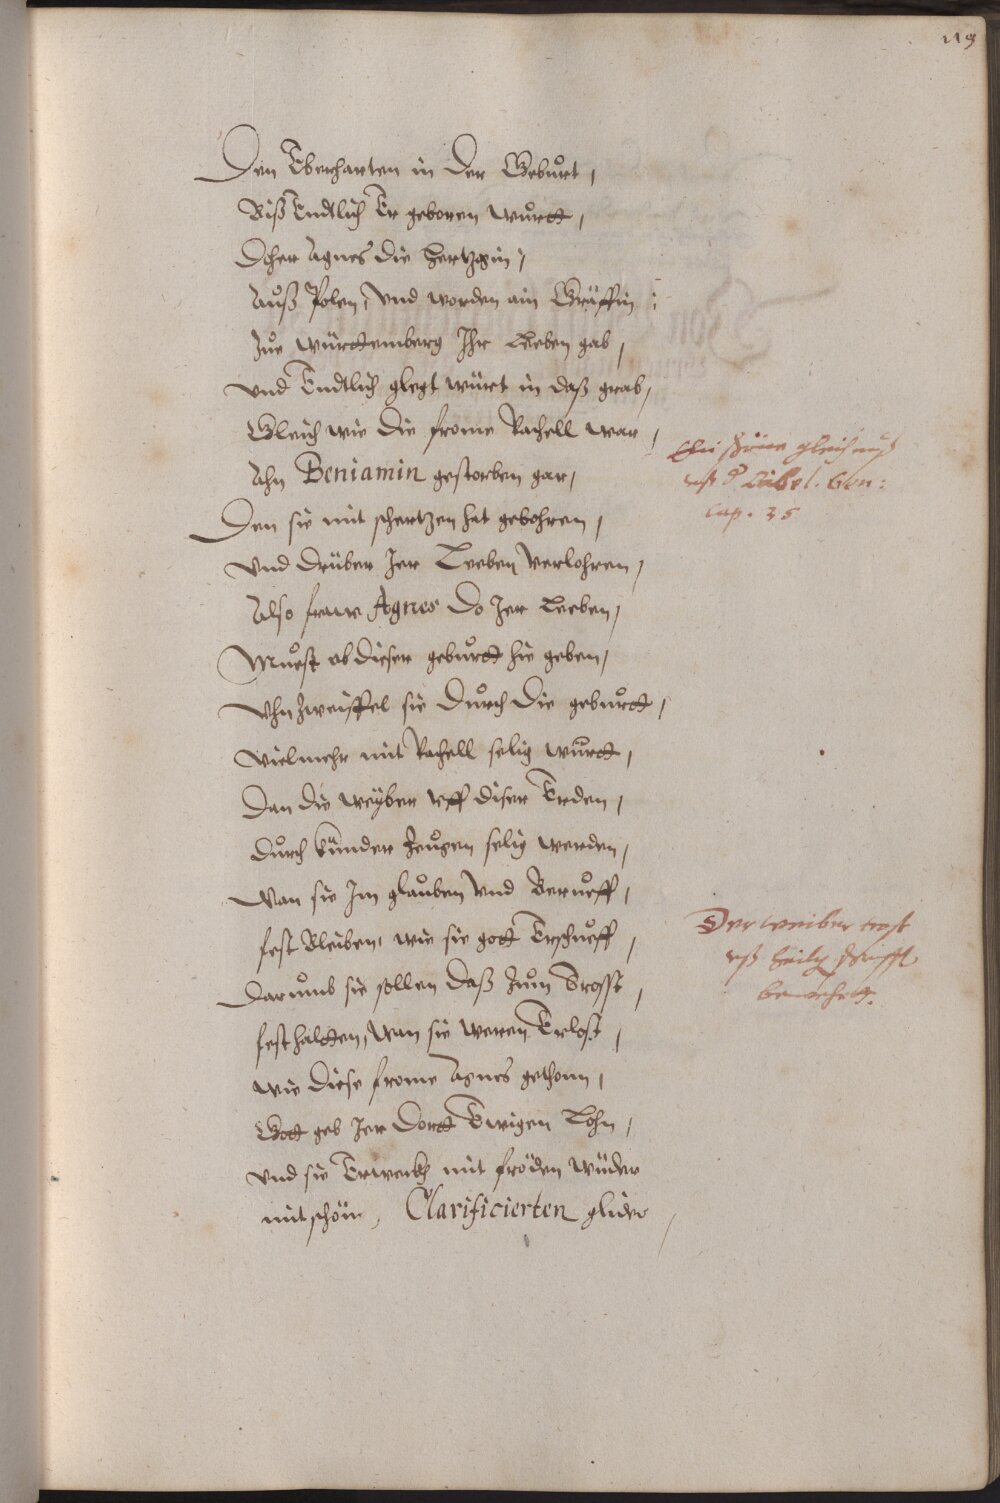 119
Den Eberharten in der Gebůrt,
Biß Endtlich Er geboren wůrdt,
Doher Agnes die Hertzgin,
Auß Polen, vnd worden ain Gräffin :
Zůe württemberg Ihr Leeben gab,
vnd Endtlich glegt würt in daß grab,
Gleich wie die frome Rachell war,
Ahn Beniamin gestorben gar,
Den sie mit schertzen hat gebohren,
vnd drüber Jer Leeben verlohren,
Also frauw Agnes do Jer Leeben,
Můest ob dieser gebůrdt hie geben,
Ohn Zweiffel sie důrch die gebůrdt,
vielmehr mit Rachell selig wůrdt,
Dan die weyber vff diser Erden,
důrch künder Zeügen selig werden,
wan sie Im glaůben vnd Berůeff,
fest Bleiben, wie sie gott Erschůeff,
Darůmb sie sollen daß Zům Trosst,
fest haltten, wan sie weren Erlost,
wie diese frome Agnes gethonn,
Gott geb Jer dortt Ewigen Lohn,
vnd sie Erweckh mit fröden wüder
mit schön, Clarificierten glider,
Ein schöne gleichnuß
auß d' Bibel. Gen:
cap. 35
Der weiber trost
auß heilig schrifft